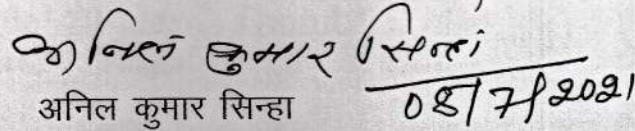 अनिल कुमार सिन्हा
08/7/2021
अनिल कुमार सिन्हा